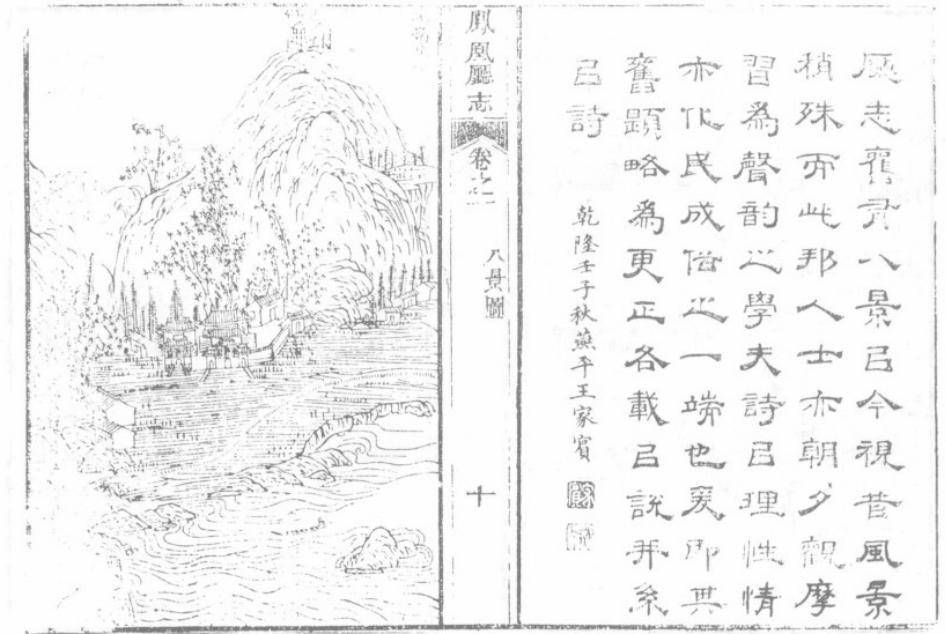 厩志舊有八景㠯今視昔風景
稍殊而此邦人士亦朝夕觀摩
習為聲韵之學夫詩㠯理性情
亦化民成俗之一端也爰即其
舊題略為更正各載㠯說并系
㠯詩
乾隆壬子秋燕平王家賓
鳳凰廳志
卷之二
八景圖
十